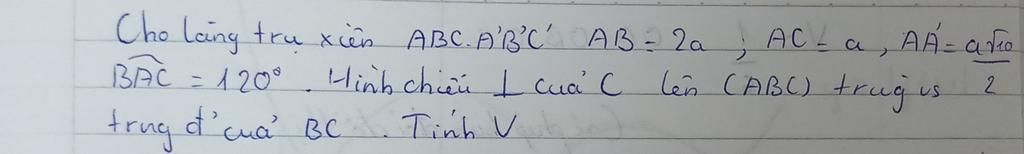 Cho lăng trụ xiên ABC.A'B'C' AB = 2a ; AC = a , AA' = a√10/2
BAC = 120° . Hình chiếu ⊥ của C lên (ABC) trùg vs
trug đ' của BC . Tính V